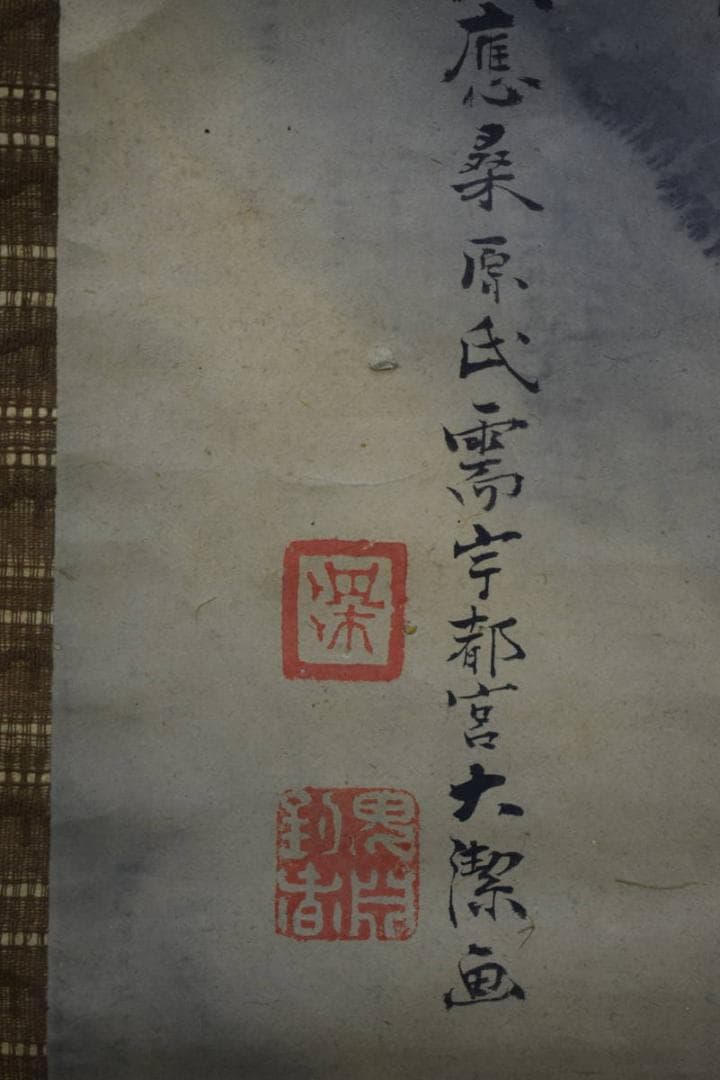 應桑原氏需宇都宮大潔画